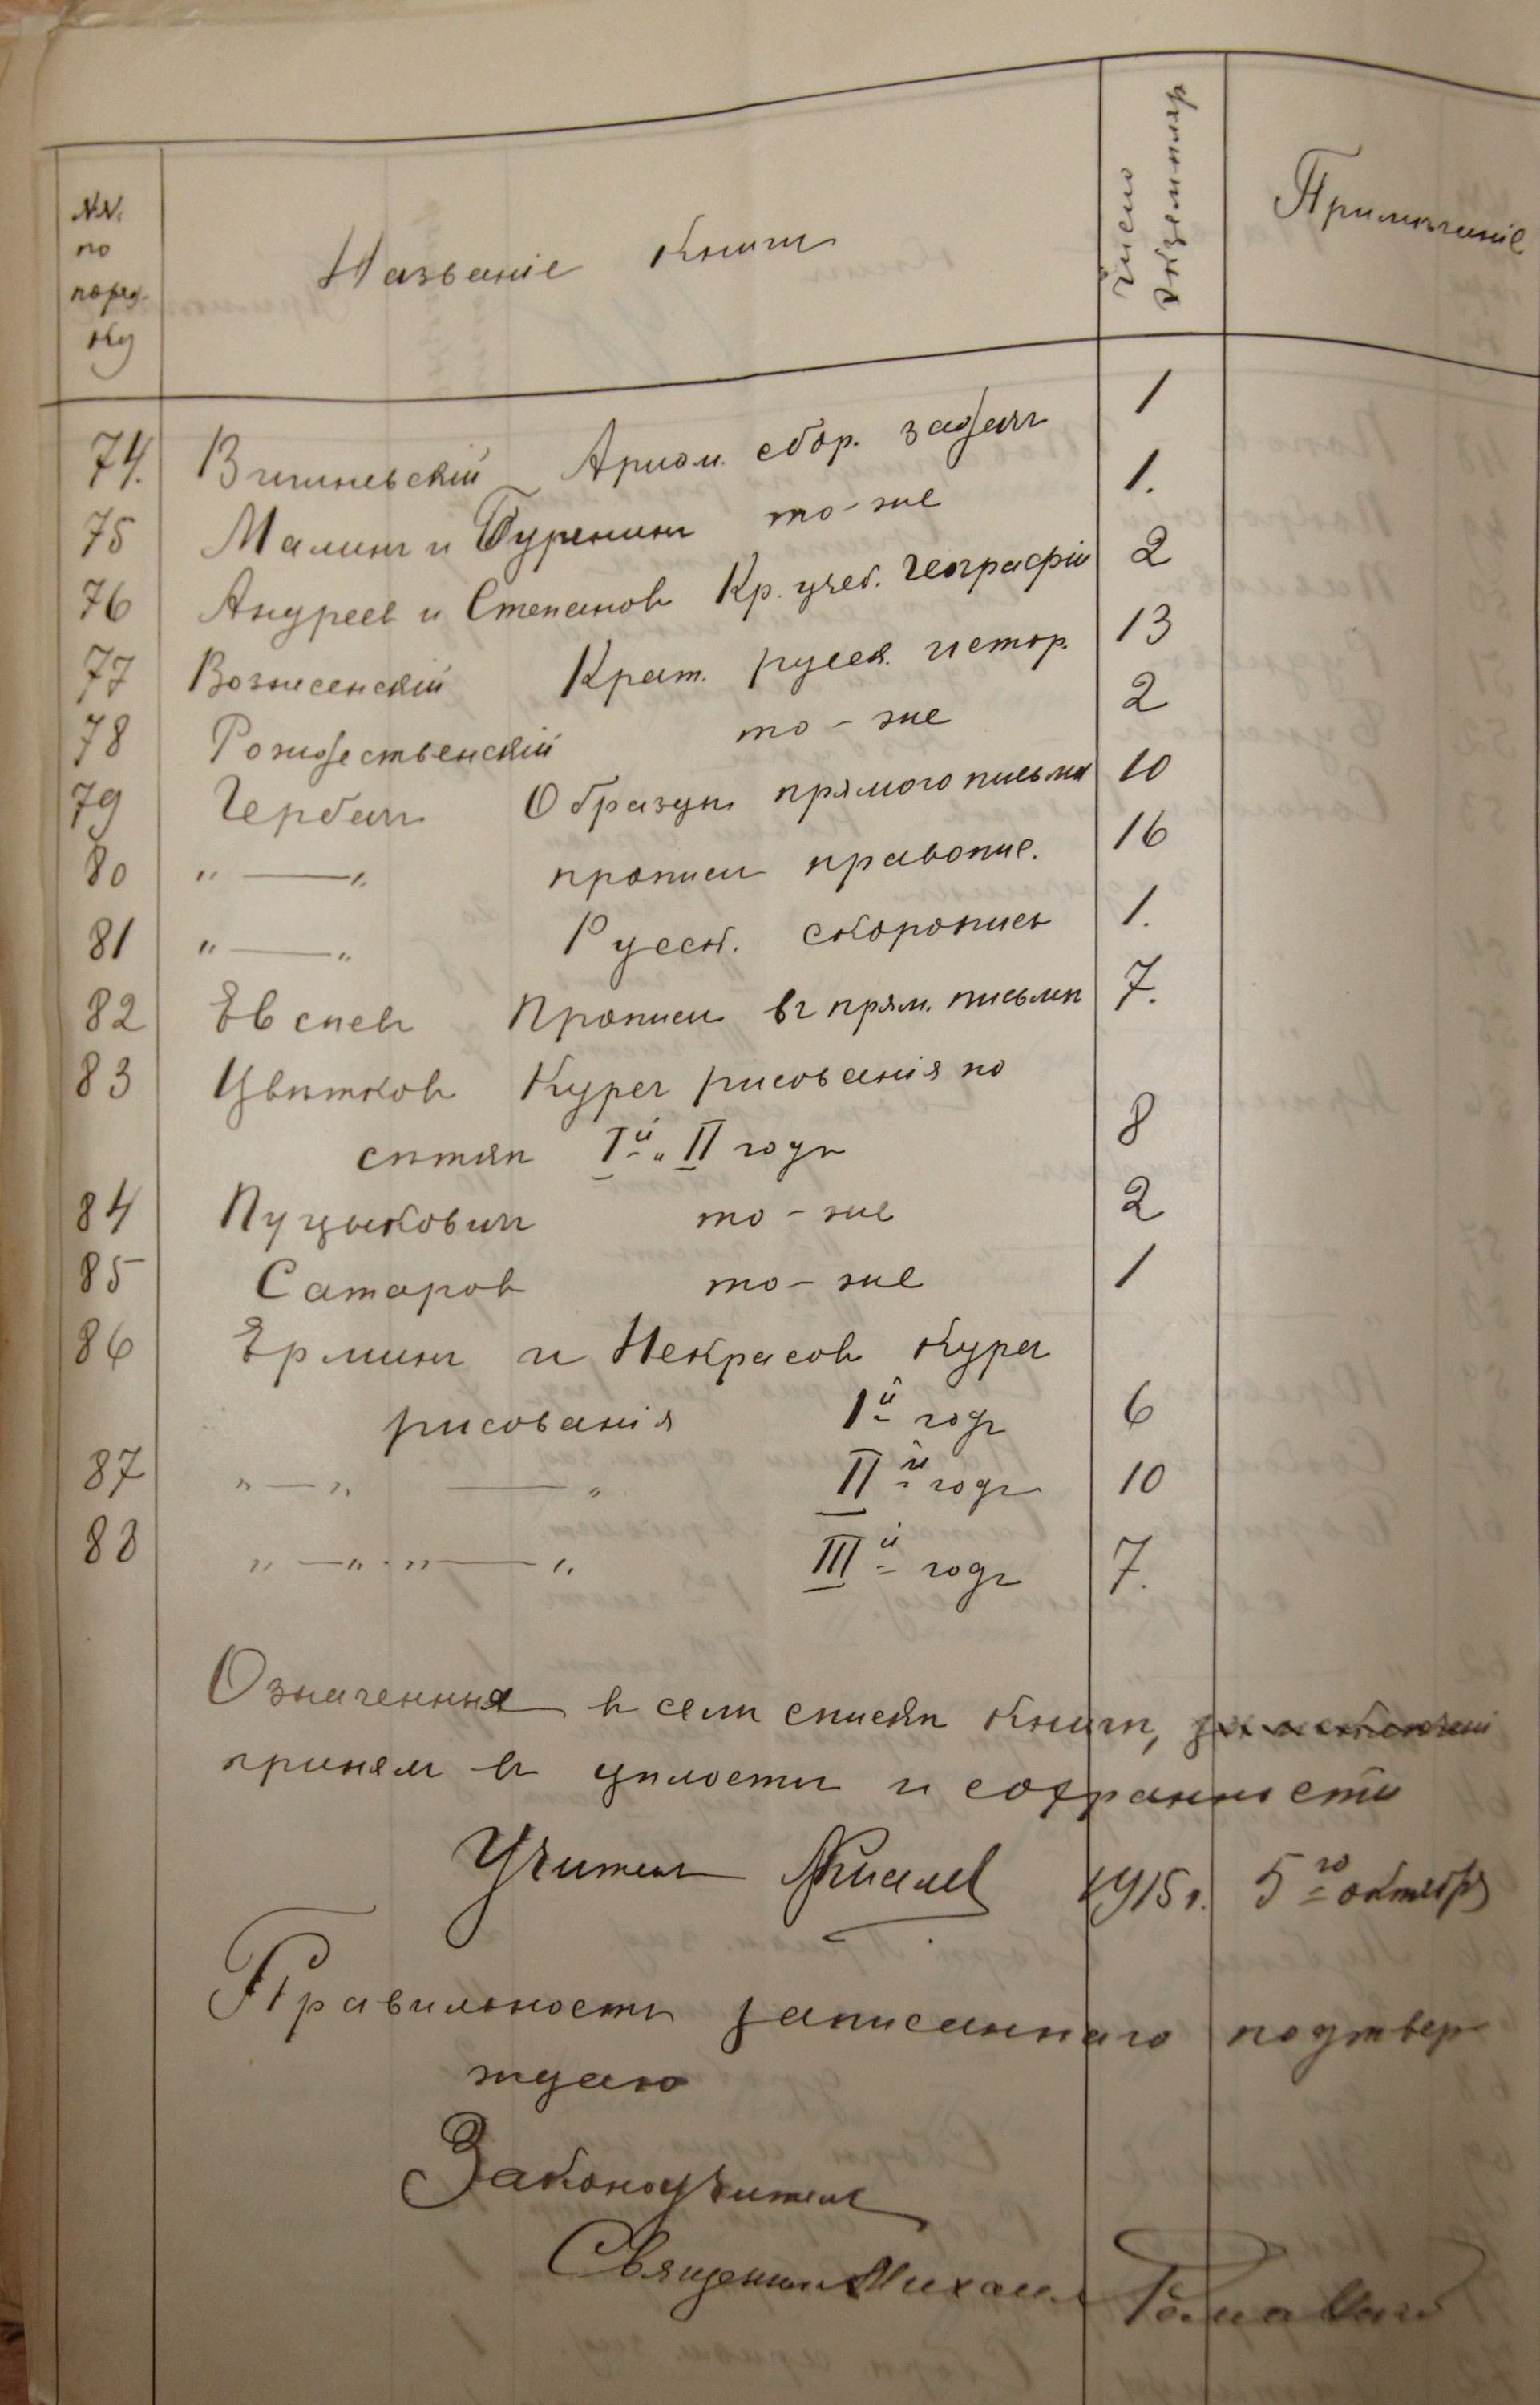 NN. по поряд-ку Названіе книги Число экземпляр Примѣчаніе
74. Вишневскій Ариѳм. сбор. задачъ 1
75 Малинъ и Буренинъ то-же 1.
76 Андреевъ и Степановъ Кр. учеб. географіи 2
77 Вознесенскій Крат. русск. истор. 13
78 Рождественскій то-же 2
79 Гербачъ Образцы прямого письма 10
80 " — " прописи правопис. 16
81 " — " Русск. скоропись 1.
82 Евсѣевъ Прописи въ прям. письмѣ 7.
83 Цвѣтковъ Курсъ рисованія по
сѣткѣ Iй и II годъ 8
84 Пуцыковичъ то-же 2
85 Сатаровъ то-же 1
86 Ерминъ и Некрасовъ курсъ
рисованія Iй годъ 6
87 " — " — " IIй годъ 10
88 " — " " — " IIIй годъ 7.
Означенныя въ семъ спискѣ книги,
принялъ въ цѣлости и сохранности
Учитель 1915 г. 5го октября
Правильность записаннаго подтвер
ждаю
Законоучитель
Священникъ Михаилъ